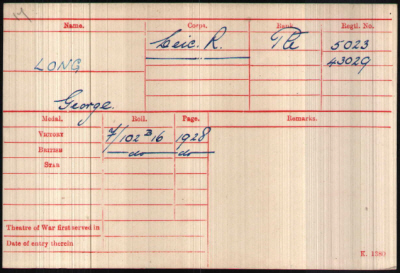 Name. Corps. Rank. Regtl. No.
LONG Leic. R. Pte 5023
43029
George.
Medal. Roll. Page. Remarks.
VICTORY 1928
BRITISH do do
STAR
Theatre of War first served in
Date of entry therein
K. 1380